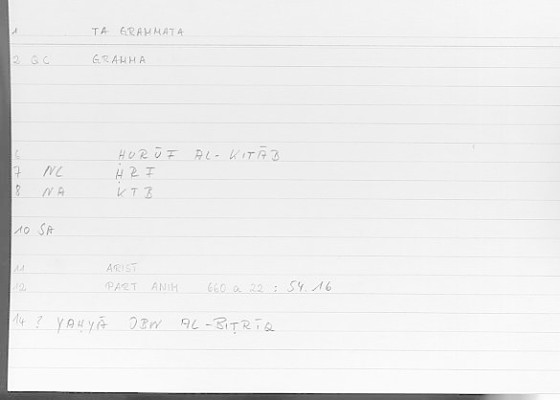 1 TA GRAMMATA
2 GC GRAMMA
6 ḤURŪF AL-KITĀB
7 NC ḤRF
8 NA KTB
10 SA
11 ARIST
12 PART ANIM 660 a 22 : 54 16
14 ! YAḤYĀ IBN AL-BIṬRĪQ